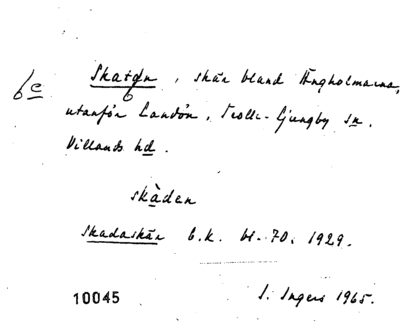 6e Skatan, skär bland Ängholmarna,
utanför Landön, Trolle-Ljungby sn.
Villands hd.
skàden
Skadaskär E.K. bl. 70. 1929.
10045 I. Ingers 1965.